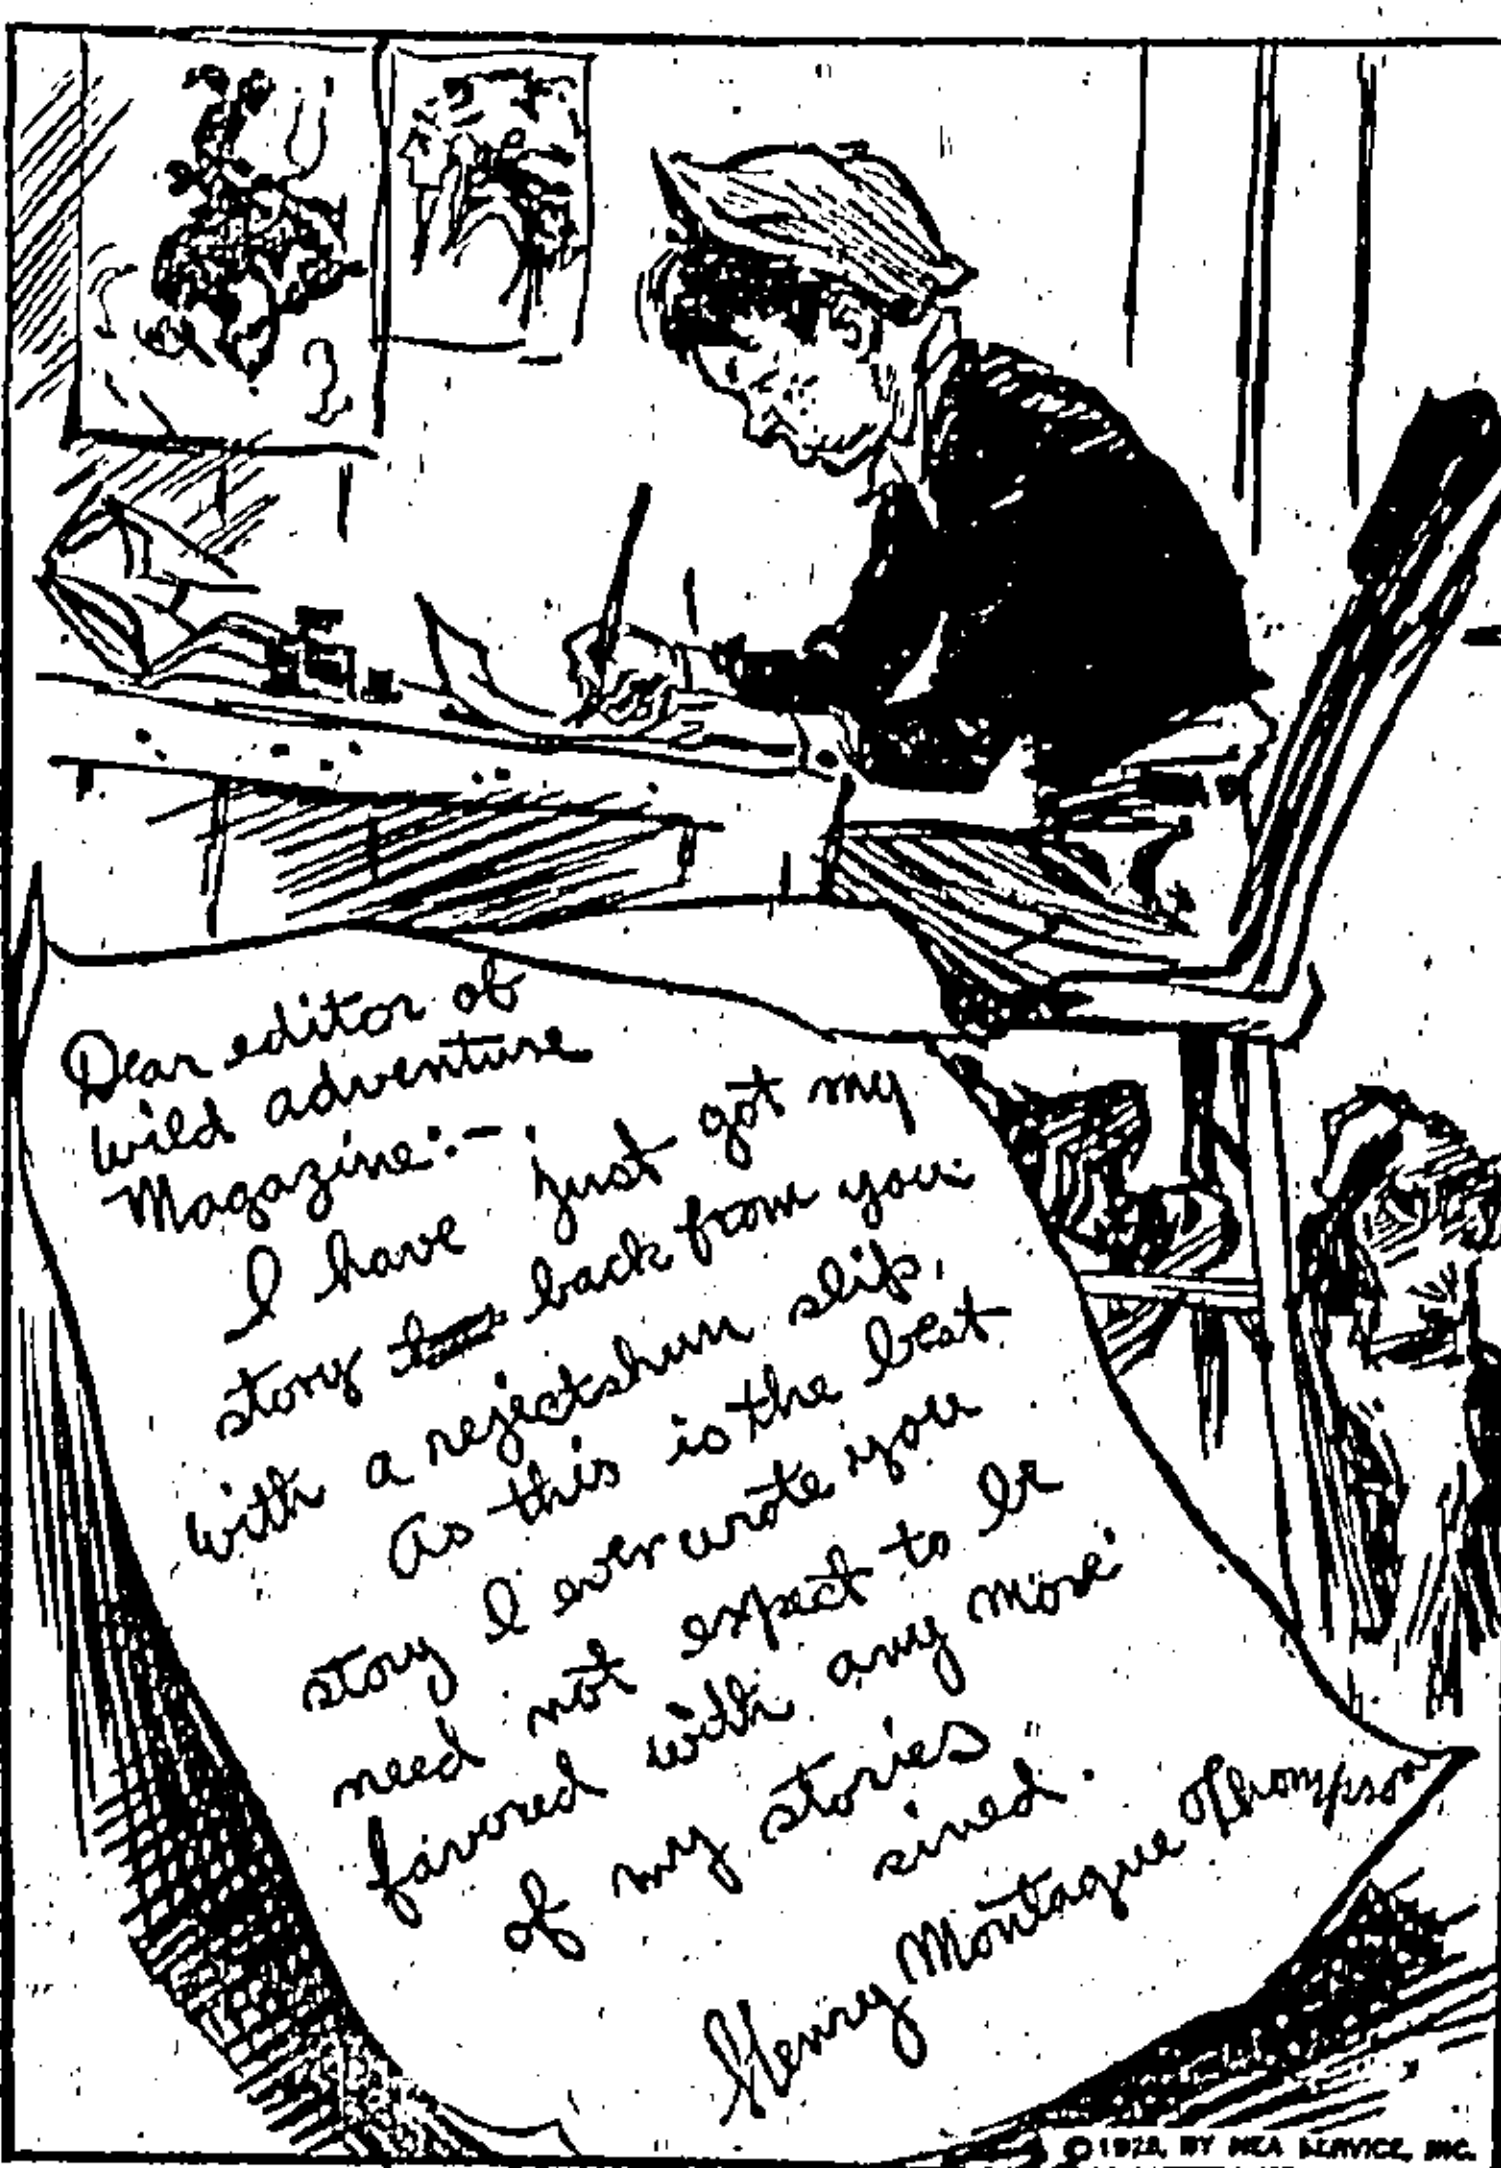 Dear editor of
wild adventure
Magazine:—
I have just got my
story back from you
with a rejectshun slip.
As this is the best
story I ever wrote you
need not expect to be
favored with any more
of my stories
sined.
Henry Montague Thompson
© 1928, BY NEA SERVICE, INC.